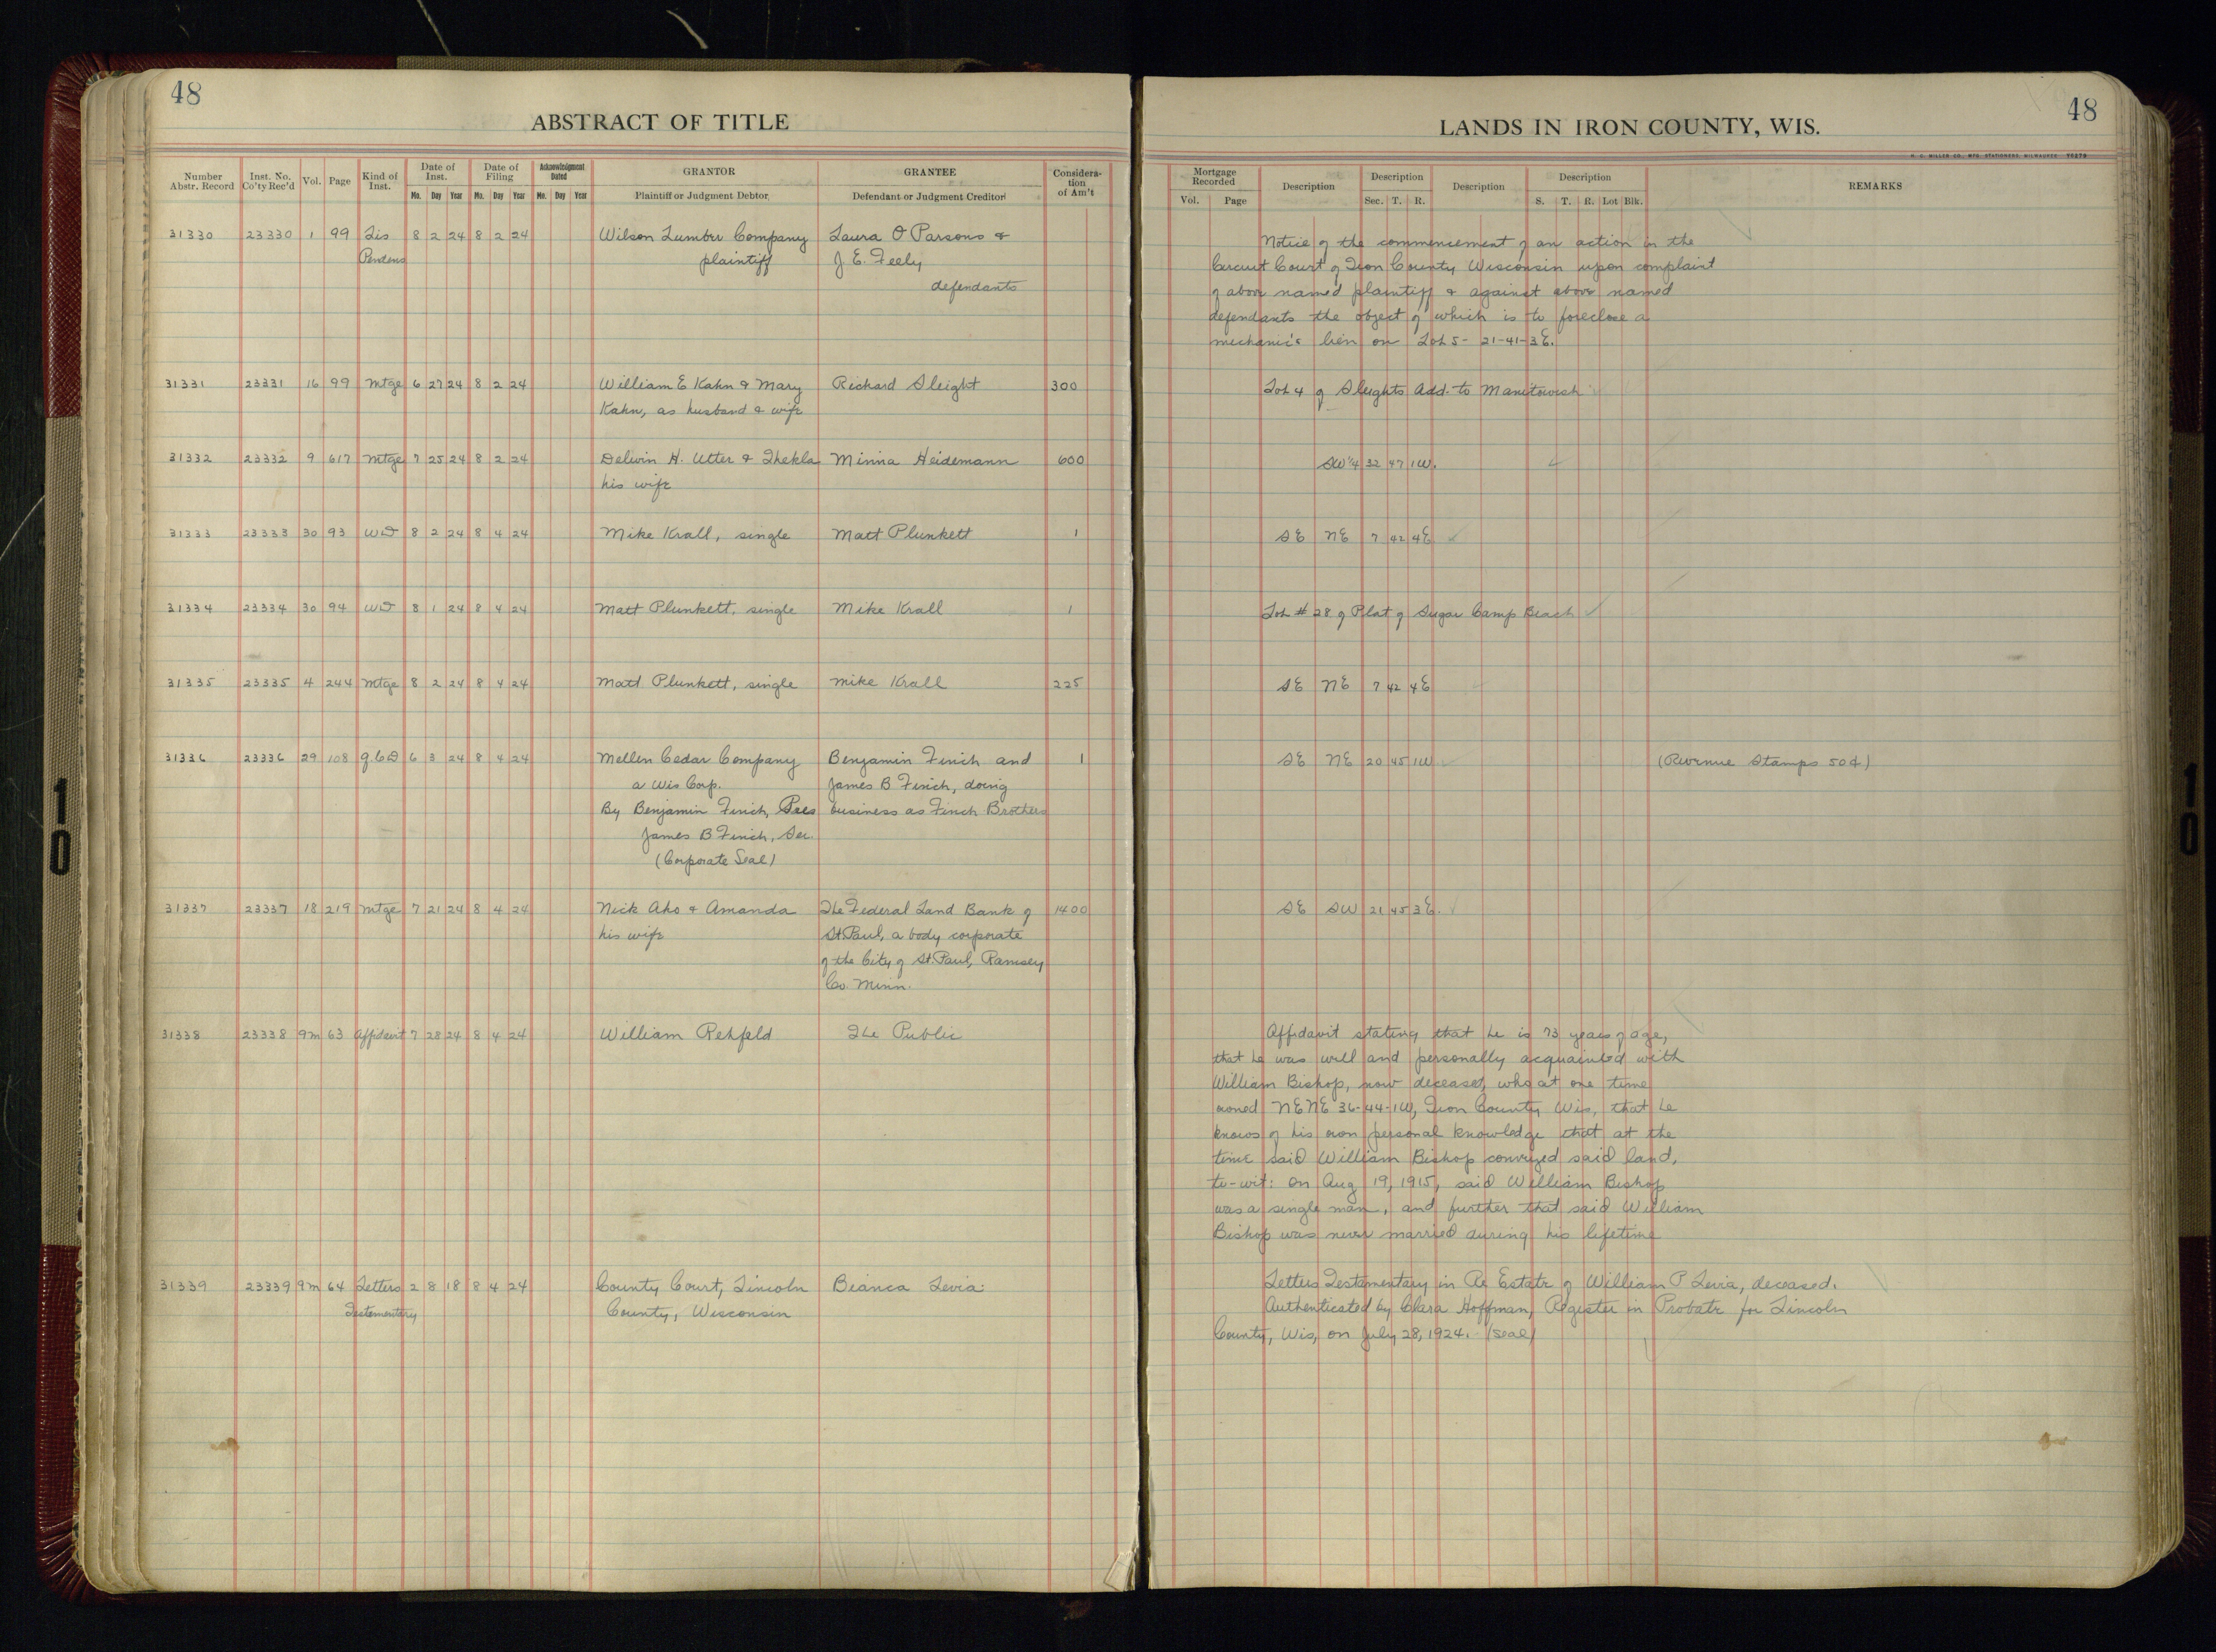 48
ABSTRACT OF TITLE
Number Abstr. Record | Inst. No. Co'ty Rec'd | Vol. | Page | Kind of Inst. | Date of Inst. Mo. Day Year | Date of Filing Mo. Day Year | Acknowledgment Dated Mo. Day Year | GRANTOR Plaintiff or Judgment Debtor | GRANTEE Defendant or Judgment Creditor | Consideration of Am't
31330 23330 1 99 Lis 8 2 24 8 2 24 Wilson Lumber Company Laura O Parsons &
Pendens plaintiff J. E. Feely
defendants
31331 23331 16 99 Mtge 6 27 24 8 2 24 William E Kahn & Mary Richard Sleight 300
Kahn, as husband & wife
31332 23332 9 617 Mtge 7 25 24 8 2 24 Delwin H. Utter & Thekla Minna Heidemann 600
his wife
31333 23333 30 93 WD 8 2 24 8 4 24 Mike Krall, single Matt Plunkett 1
31334 23334 30 94 WD 8 1 24 8 4 24 Matt Plunkett, single Mike Krall 1
31335 23335 4 244 Mtge 8 2 24 8 4 24 Matt Plunkett, single Mike Krall 225
31336 23336 29 108 Q.C.D 6 3 24 8 4 24 Mellen Cedar Company Benjamin Finch and 1
a Wis Corp. James B Finch, doing
By Benjamin Finch, Pres business as Finch Brothers
James B Finch, Sec.
(Corporate Seal)
31337 23337 18 219 Mtge 7 21 24 8 4 24 Nick Aho & Amanda The Federal Land Bank of 1400
his wife St. Paul, a body corporate
of the City of St. Paul, Ramsey
Co. Minn.
31338 23338 9m 63 Affidavit 7 28 24 8 4 24 William Rehfeld The Public
31339 23339 9m 64 Letters 2 8 18 8 4 24 County Court, Lincoln Bianca Levia
Testamentary County, Wisconsin
48
LANDS IN IRON COUNTY, WIS.
H. C. MILLER CO., MFG. STATIONERS, MILWAUKEE
Mortgage Recorded Vol. Page | Description | Description Sec. T. R. | Description | Description S. T. R. Lot Blk. | REMARKS
Notice of the commencement of an action in the
Circuit Court of Iron County Wisconsin upon complaint
of above named plaintiff & against above named
defendants the object of which is to foreclose a
mechanic's lien on Lot 5 - 21-41-3E.
Lot 4 of Sleights Add. to Manitowish
SW¼ 32 47 1W.
SE NE 7 42 4E
Lot # 28 of Plat of Sugar Camp Beach
SE NE 7 42 4E
SE NE 20 45 1W (Revenue Stamps 50¢)
SE SW 21 45 3E.
Affidavit stating that he is 73 years of age,
that he was well and personally acquainted with
William Bishop, now deceased, who at one time
owned NENE 36-44-1W, Iron County Wis, that he
knows of his own personal knowledge that at the
time said William Bishop conveyed said land,
to-wit: on Aug 19, 1915, said William Bishop
was a single man, and further that said William
Bishop was never married during his lifetime
Letters Testamentary in Re Estate of William P Levia, deceased.
Authenticated by Clara Hoffman, Register in Probate for Lincoln
County, Wis, on July 28, 1924. (Seal)
10
10